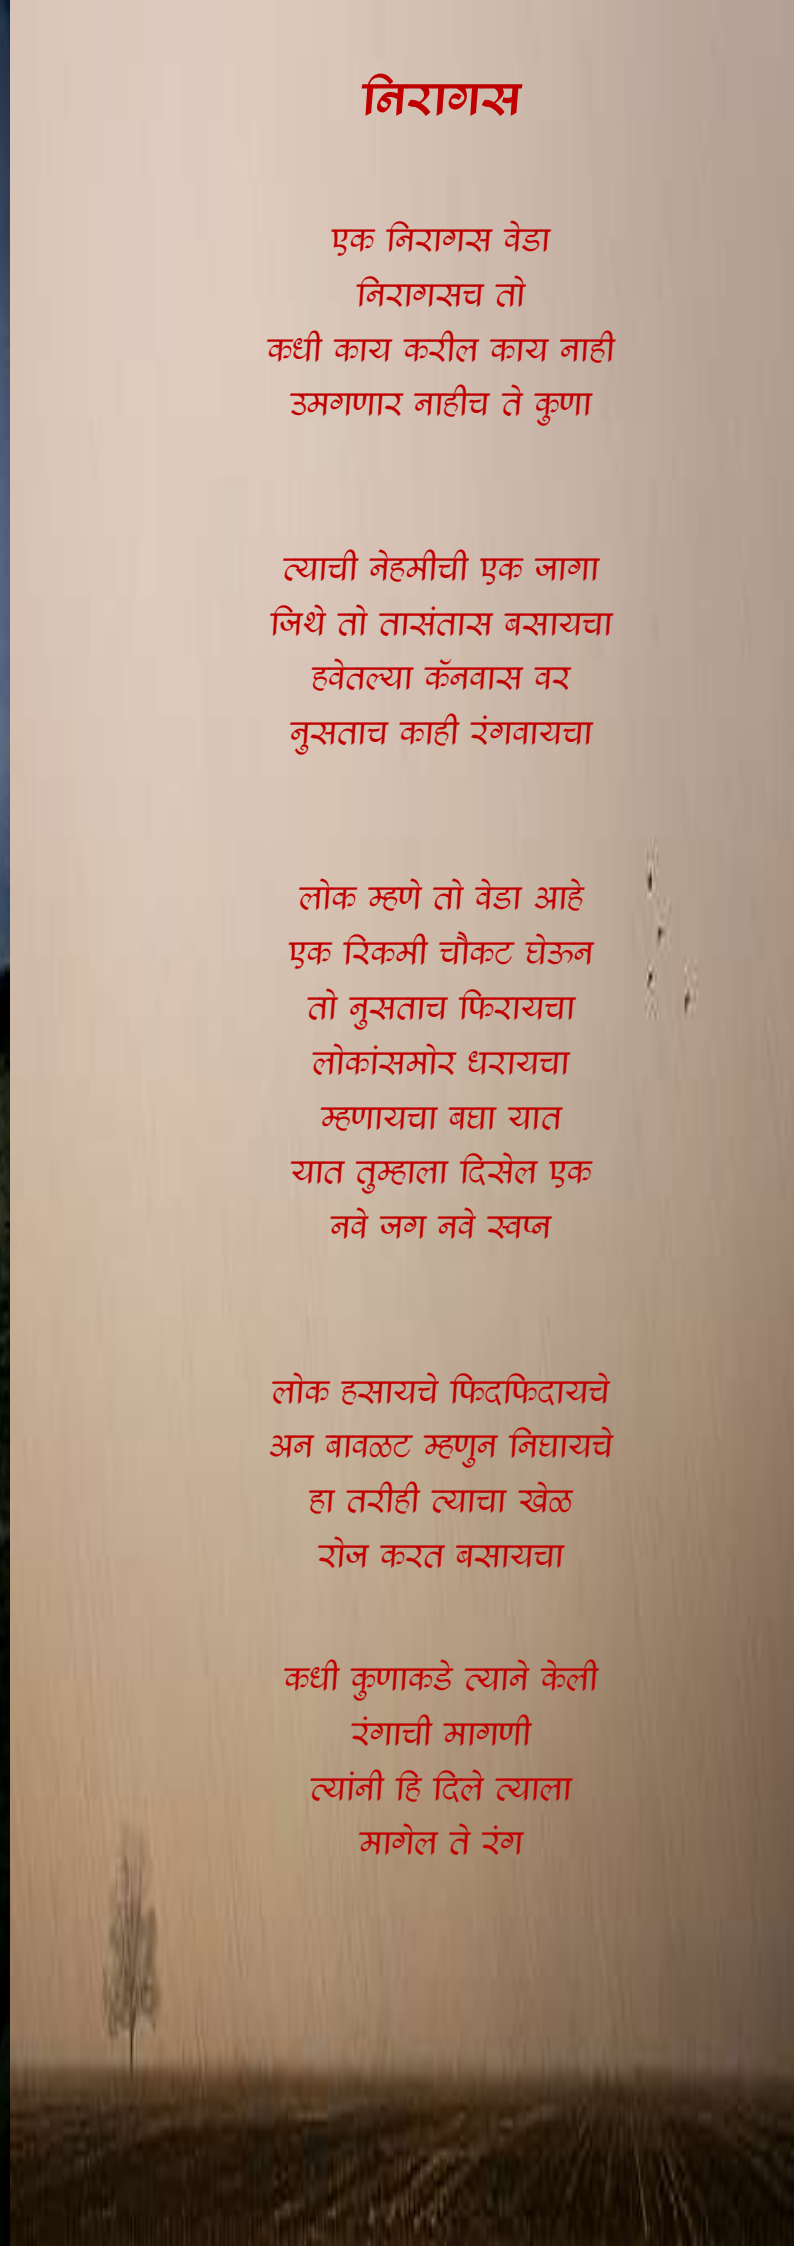 निरागस
एक निरागस वेडा
निरागसच तो
कधी काय करील काय नाही
उमगणार नाहीच ते कुणा
त्याची नेहमीची एक जागा
जिथे तो तासंतास बसायचा
हवेतल्या कॅनवास वर
नुसताच काही रंगवायचा
लोक म्हणे तो वेडा आहे
एक रिकमी चौकट घेऊन
तो नुसताच फिरायचा
लोकांसमोर धरायचा
म्हणायचा बघा यात
यात तुम्हाला दिसेल एक
नवे जग नवे स्वप्न
लोक हसायचे फिदफिदायचे
अन बावळट म्हणुन निघायचे
हा तरीही त्याचा खेळ
रोज करत बसायचा
कधी कुणाकडे त्याने केली
रंगाची मागणी
त्यांनी हि दिले त्याला
मागेल ते रंग